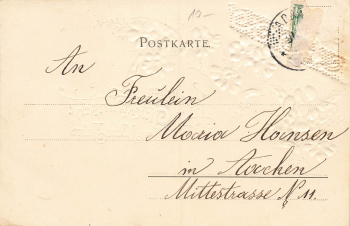 19.-
POSTKARTE.
An
Freulein
Maria Hansen
in Aachen
Mittelstrasse N 11.